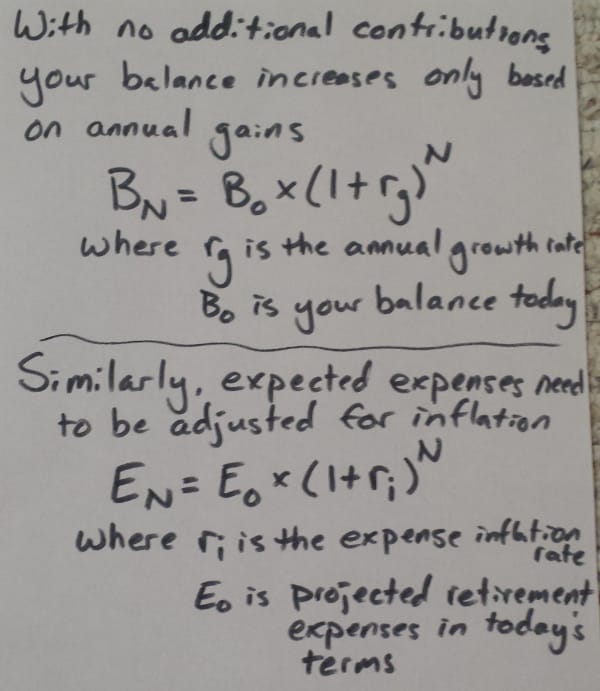 With no additional contributions
your balance increases only based
on annual gains
B_N = B_0 × (1 + r_g)^N
where r_g is the annual growth rate
B_0 is your balance today
Similarly, expected expenses need
to be adjusted for inflation
E_N = E_0 × (1 + r_i)^N
where r_i is the expense inflation
rate
E_0 is projected retirement
expenses in today's
terms